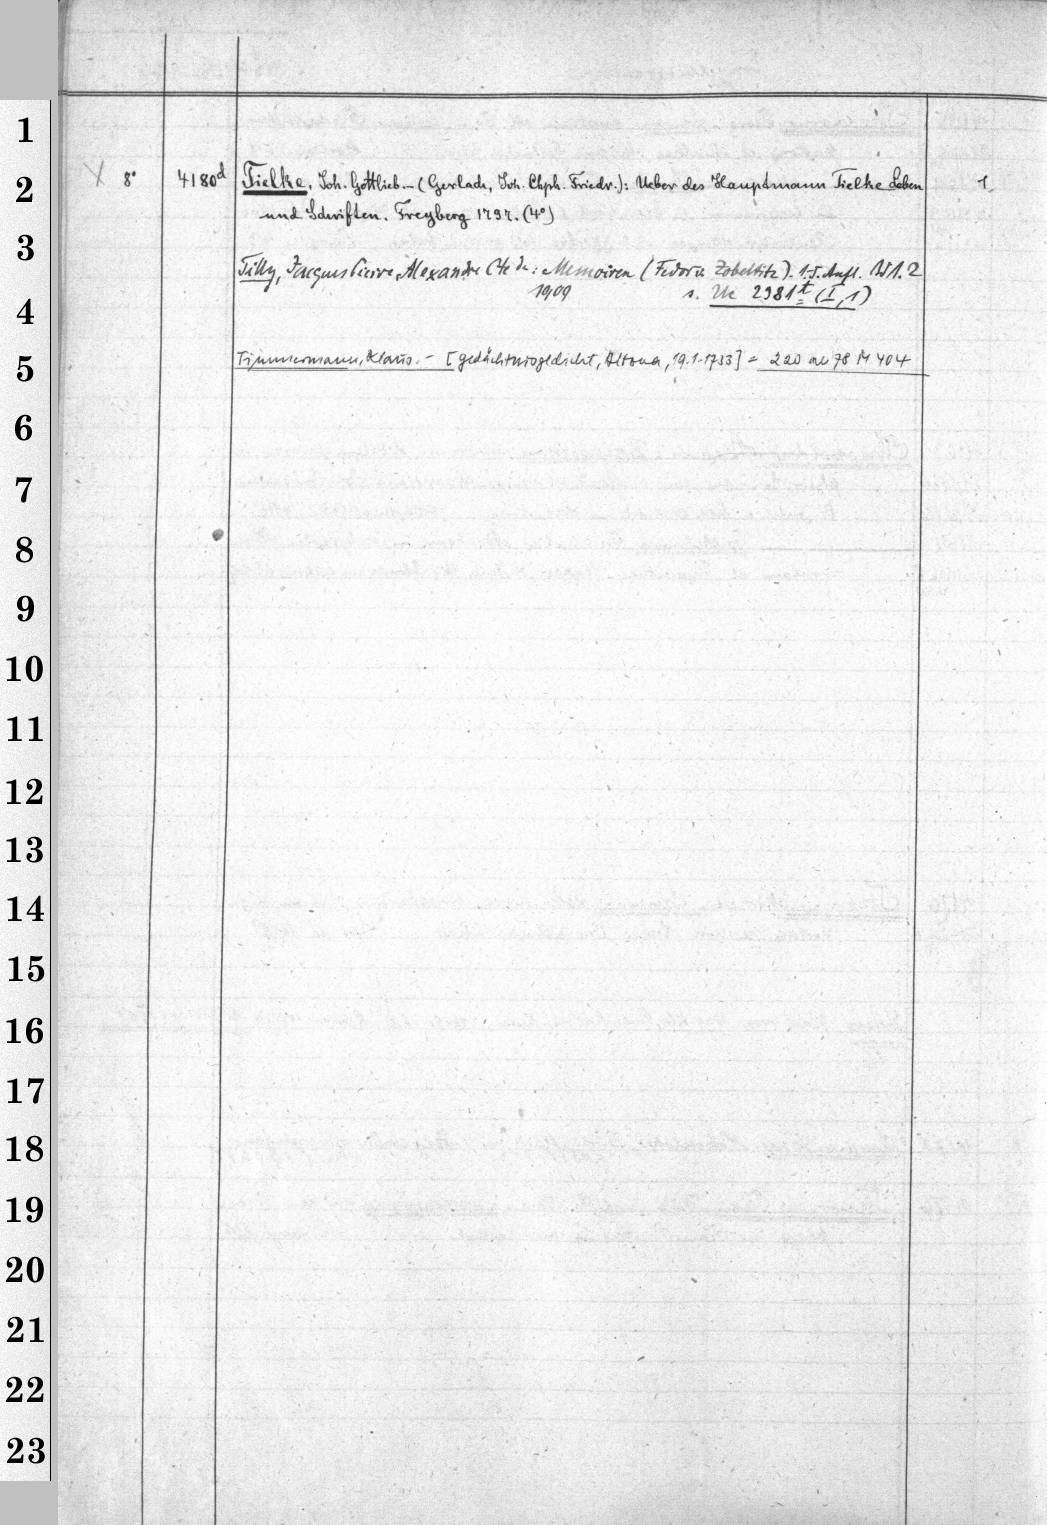 1
2
3
4
5
6
7
8
9
10
11
12
13
14
15
16
17
18
19
20
21
22
23
8° 4180d Tielke, Joh. Gottlieb. – (Gerlach, Joh. Chph. Friedr.): Ueber des Hauptmann Tielke Leben 1
und Schriften. Freyberg 1797. (4°)
Tilly, Jacques Pierre Alexandre Cte de: Memoiren (Fedor v. Zobeltitz). 1.-5. Aufl. Bd 1. 2
1909 s. Um 2981t (I, 1)
Timmermann, Klaus. – [Gedächtnisgedicht, Altona, 19.1.1733] = 220 an 78 M 404